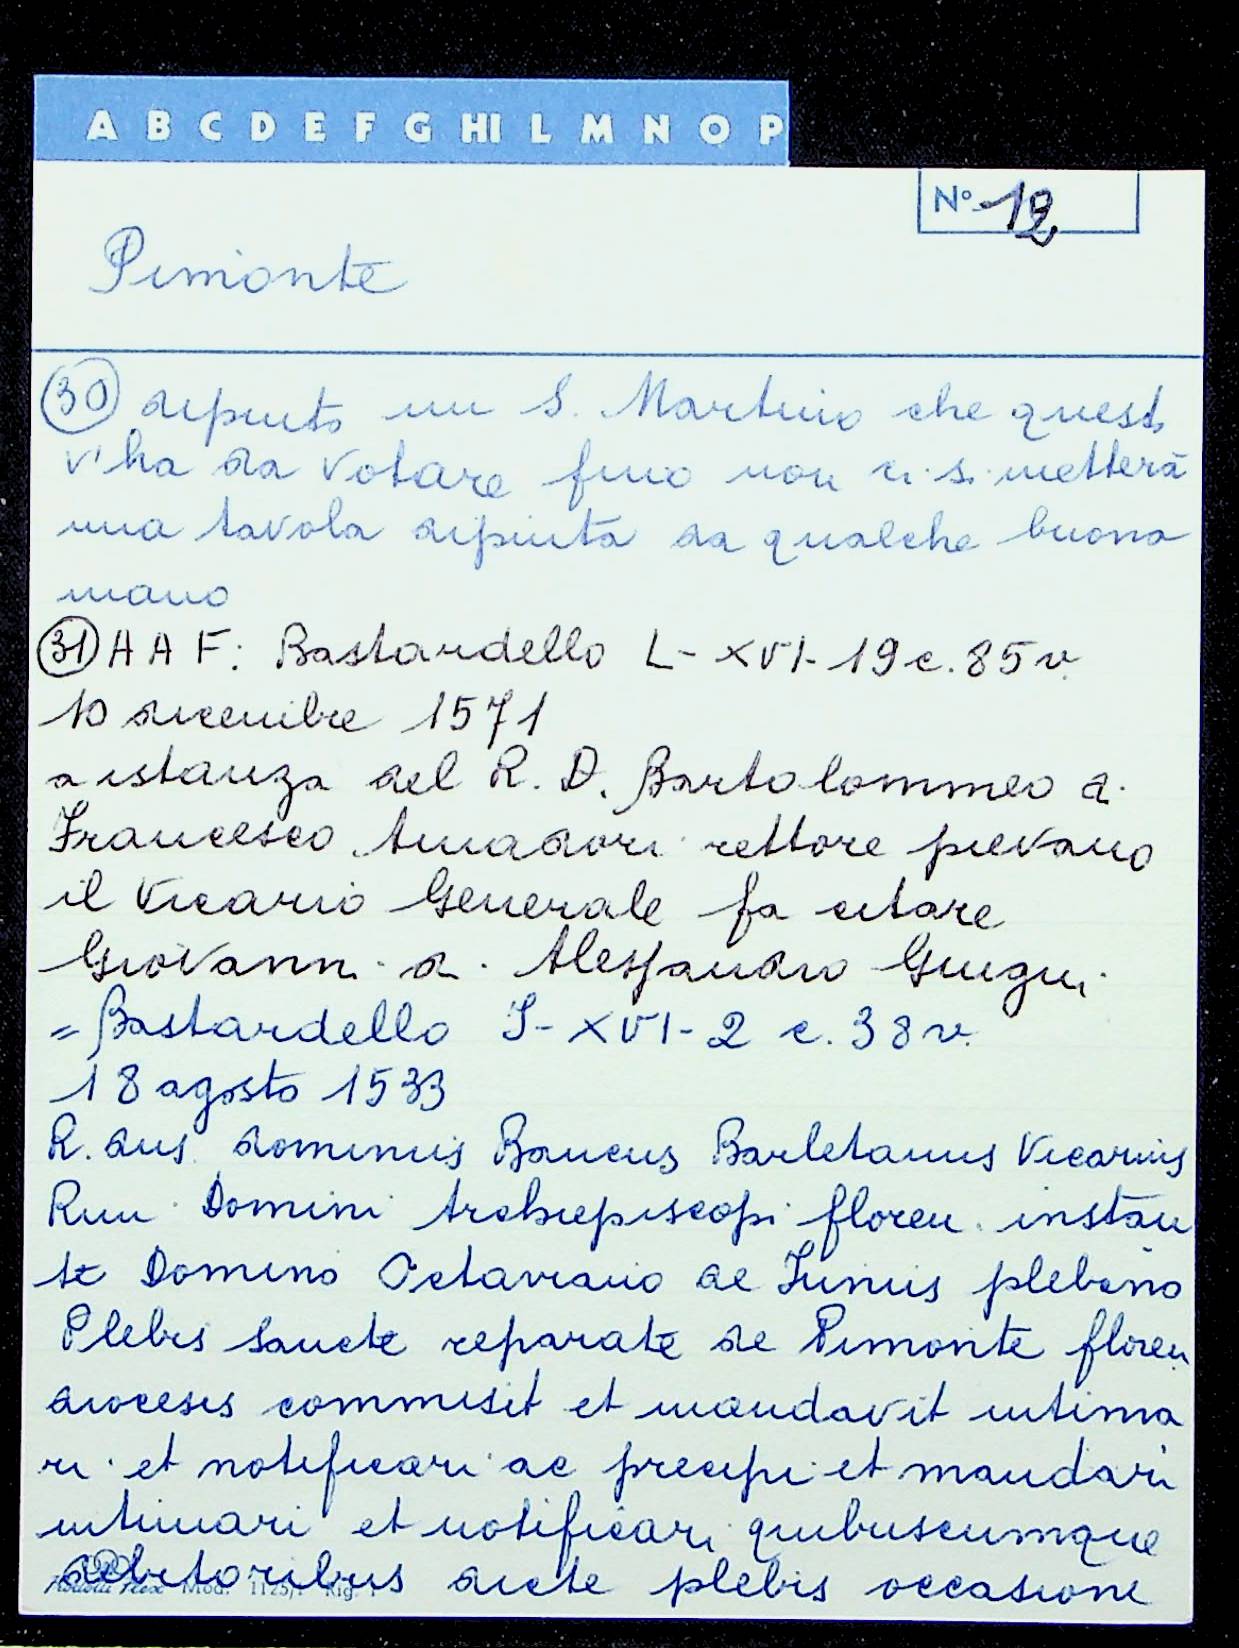 A B C D E F G HI L M N O P
N° 12
Pimonte
30 dipinto un S. Martino che questo
v'ha da votare fino non ci si metterà
una tavola dipinta da qualche buona
mano
31 A A F: Bastardello L-XVI-19 c. 85 v.
10 dicembre 1571
a istanza del R. D. Bartolommeo di
Francesco Amadori rettore pievano
il Vicario Generale fa citare
Giovanni di Alessandro Guigui
= Bastardello I-XVI-2 c. 38 v.
18 agosto 1533
R. dus dominus Baucus Barletanus Vicarius
Rmi Domini Archiepiscopi floren. instan
te Domino Octaviano de Iunius plebano
Plebis Sancte reparate de Pimonte floren
diocesis commisit et mandavit intima
ri et notificari ac precipi et mandari
intimari et notificari quibuscumque
debitoribus dicte plebis occasione
Mod. 1125/